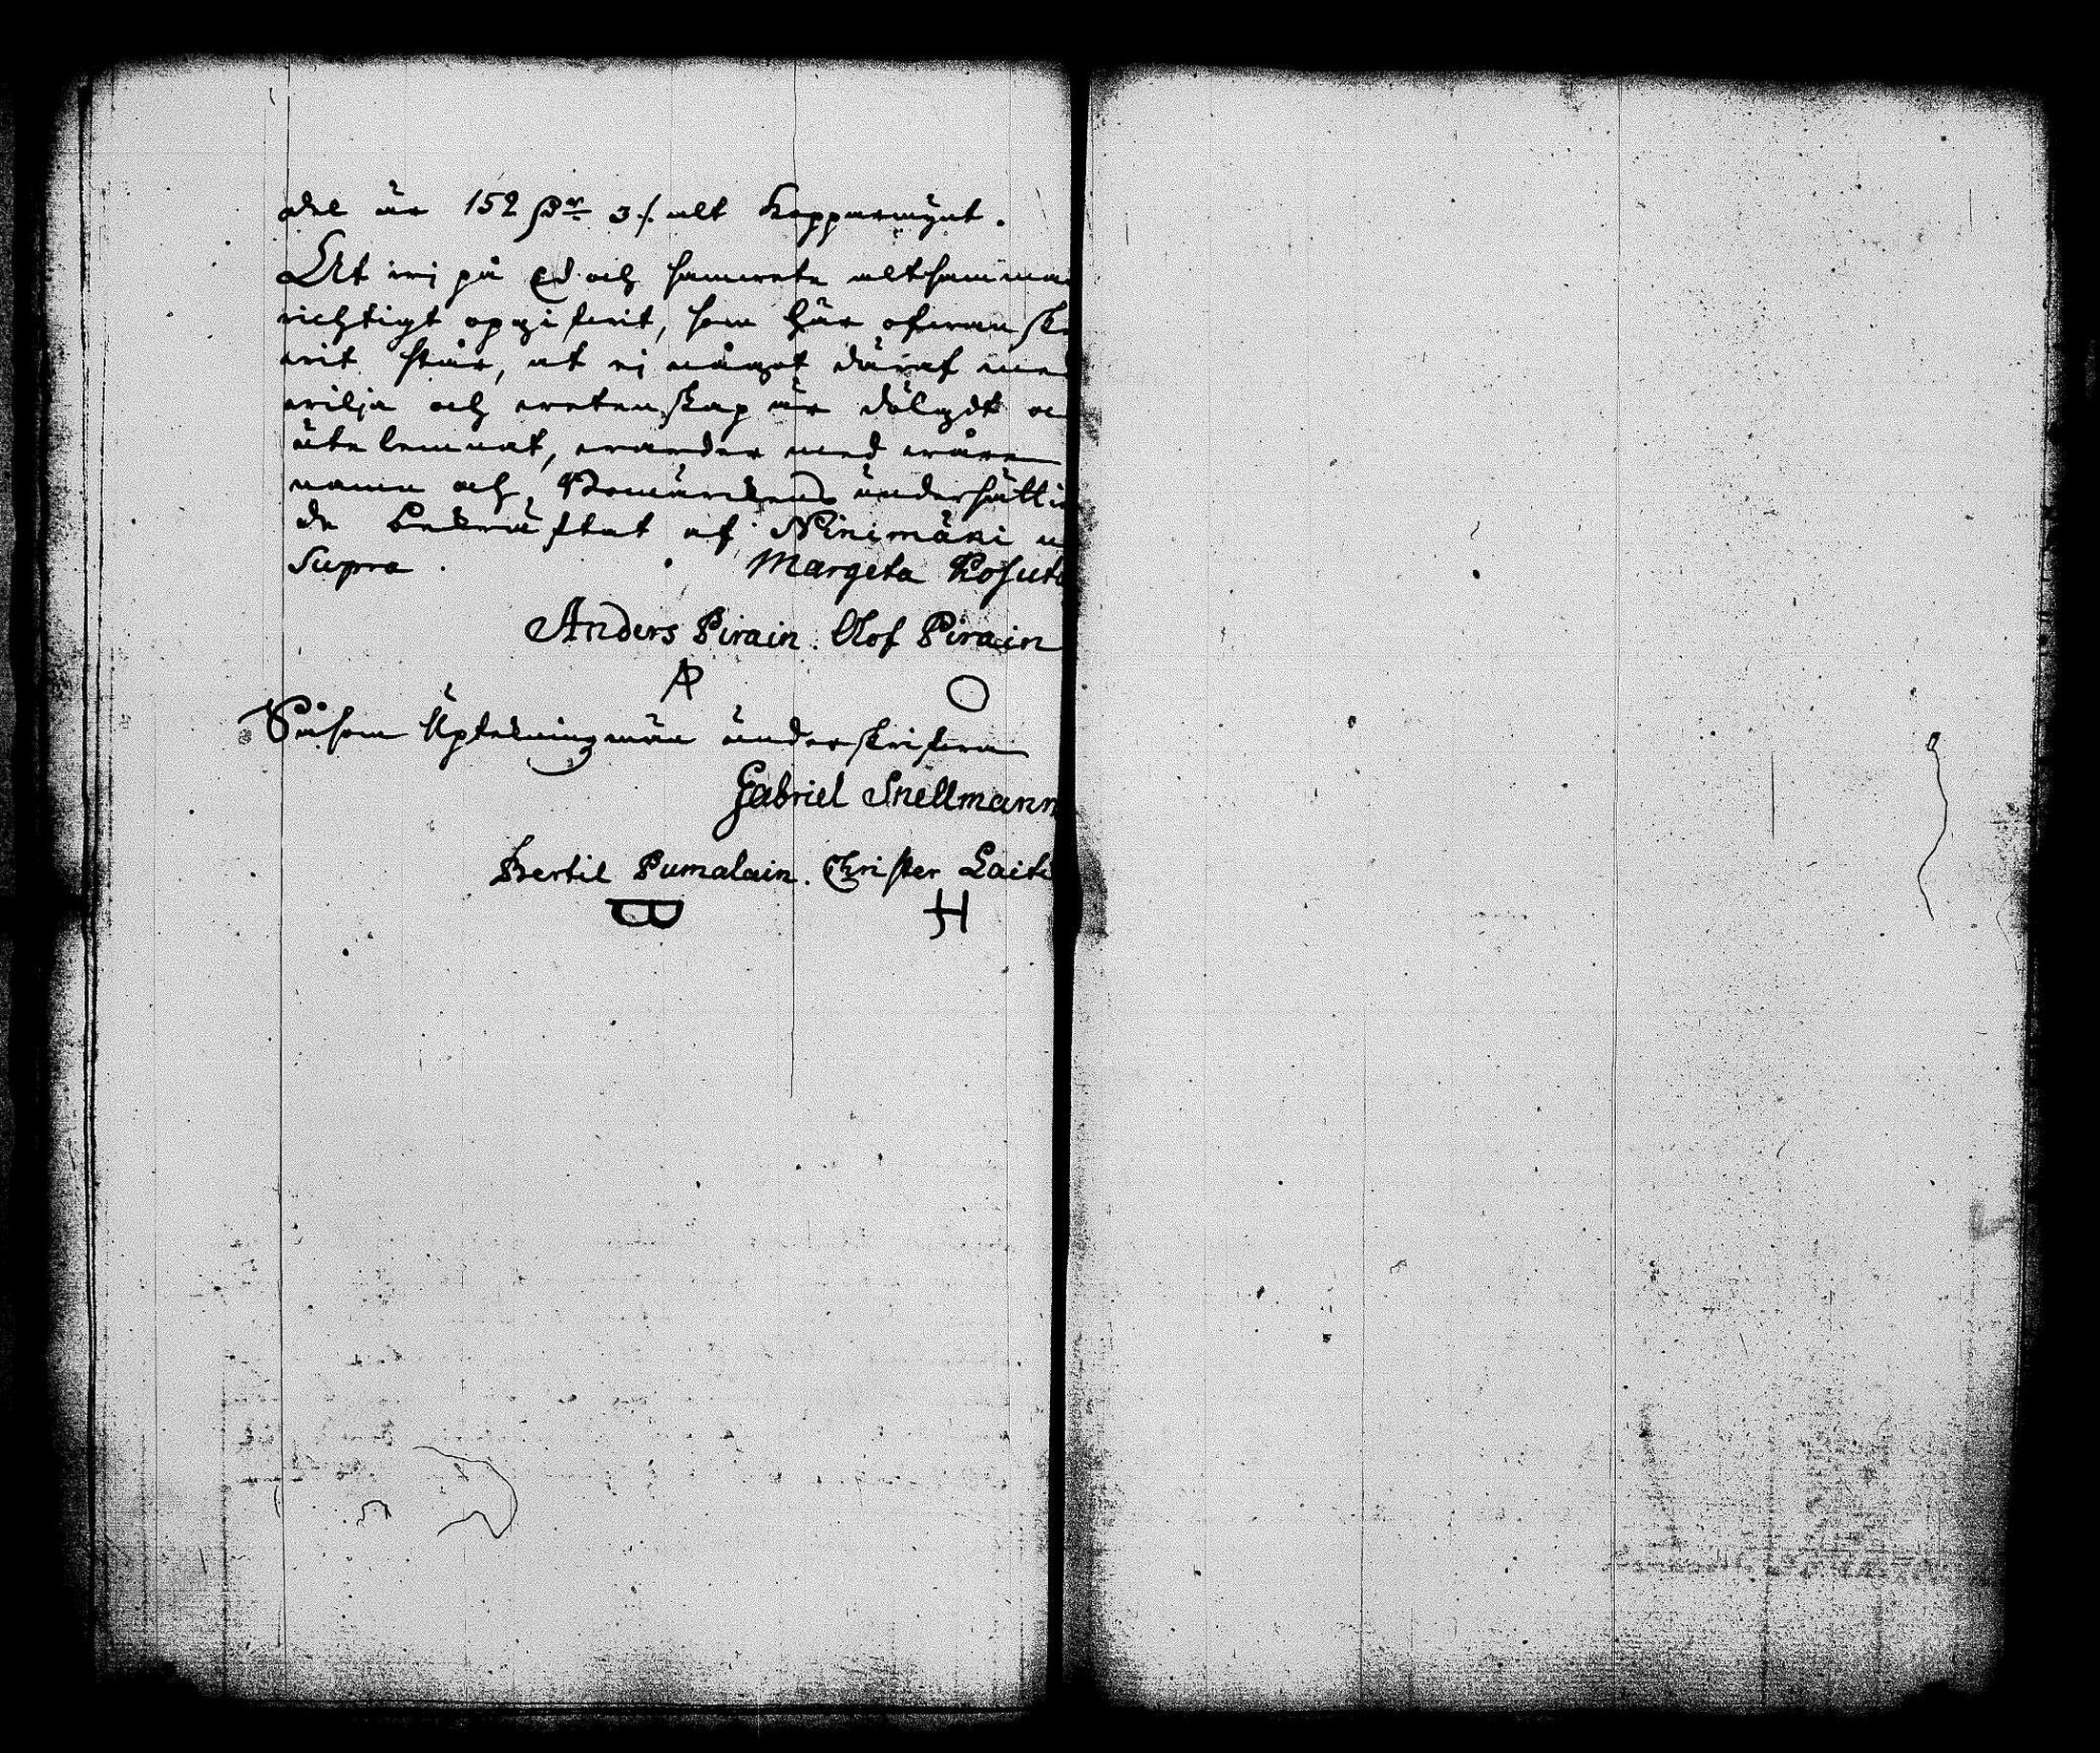 del är 152 Dr 3/. alt Koppermÿnt.
At wij på Ed och samwete altsamma
richtigt opgifwit, som här ofwan skr
wit står, at ej något däraf med
wilja och wetenskap är dölgdt oc
ute lemnat, warder med wåra
namn och Bomärkens undersätti
de bekräftat af Ninimäki u
Supra. Margeta Kosuta
Anders Pirain. Olof Pirain
AP O
Såsom Upteckningzmän underskrifwa
Gabriel Snellmann
Bertil Pumalain. Christer Laiti
B H